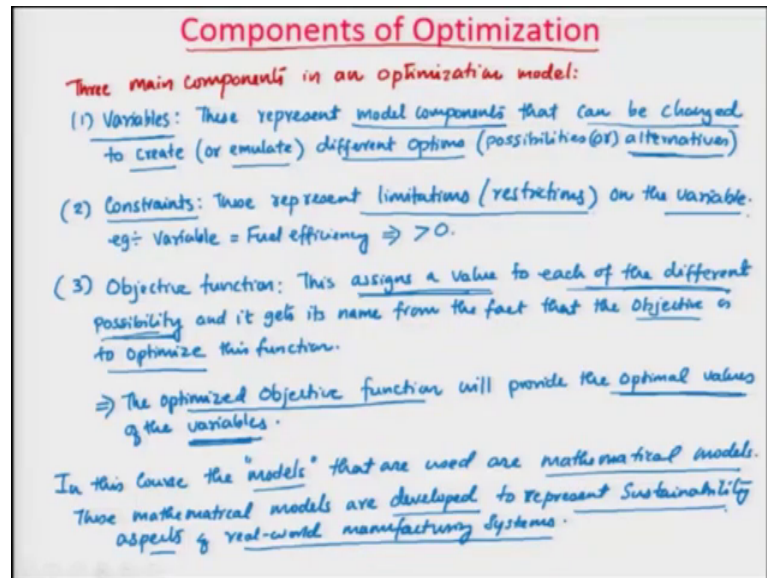 Components of Optimization
Three main components in an optimization model:
(1) Variables: These represent model components that can be changed
to create (or emulate) different options (possibilities (or) alternatives)
(2) Constraints: These represent limitations (restrictions) on the variable.
eg÷ Variable = Fuel efficiency ⇒ > 0.
(3) Objective function: This assigns a value to each of the different
possibility and it gets its name from the fact that the objective is
to optimize this function.
⇒ The optimized objective function will provide the optimal values
of the variables.
In this course the "models" that are used are mathematical models.
These mathematical models are developed to represent sustainability
aspects of real-world manufacturing systems.